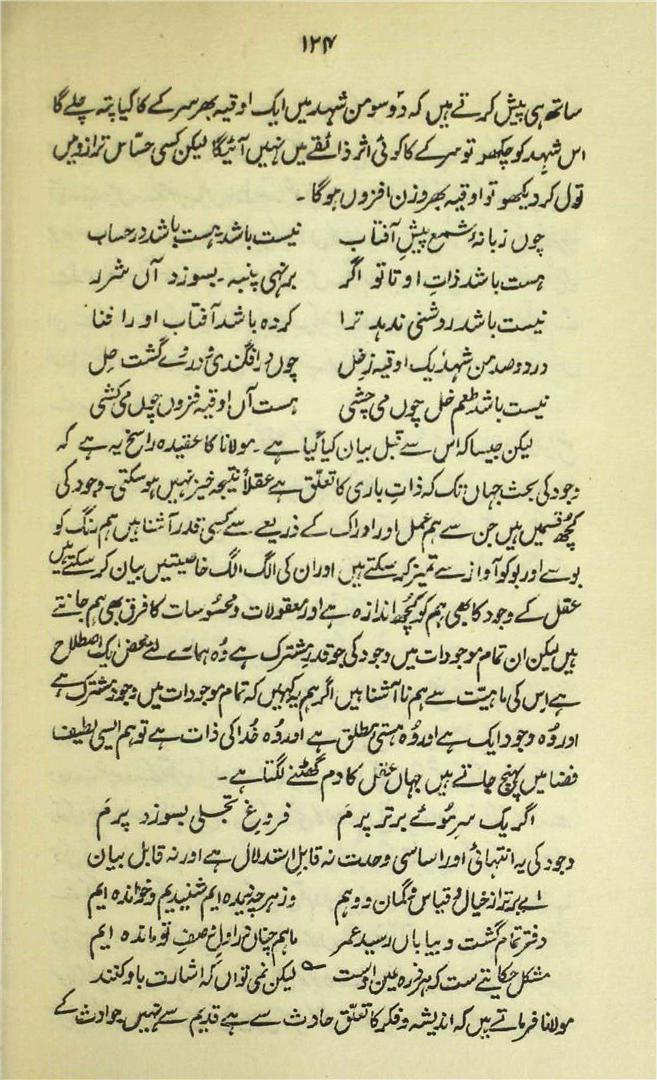 ۱۲۴
ساتھ ہی پیش کرتے ہیں کہ دو سو من شہد میں ایک اوقیہ بھر سرکے کا کیا پتہ چلے گا
اس شہد کو چکھو تو سرکے کا کوئی اثر ذائقے میں نہیں آئیگا لیکن کسی حسّاس ترازو میں
تول کر دیکھو تو اوقیہ بھر وزن افزوں ہوگا ۔
چوں زبانۂ شمع پیشِ آفتاب نیست باشد ہست باشد در حساب
ہست باشد ذاتِ او تا تو اگر برنہی پنبہ ۔ بسوزد آں شرر
نیست باشد روشنی ندہد ترا کردہ باشد آفتاب او را فنا
در دو صد من شہد یک اوقیہ ز خل چوں در افگندی و در وے گشت حل
نیست باشد طعم خل چوں می چشی ہست آں اوقیہ فزوں چوں می کشی
لیکن جیسا کہ اس سے قبل بیان کیا گیا ہے ۔ مولانا کا عقیدہ راسخ یہ ہے کہ
وجود کی بحث جہاں تک کہ ذاتِ باری کا تعلّق ہے عقلاً نتیجہ خیز نہیں ہو سکتی۔ وجود کی
کچھ قسمیں ہیں جن سے ہم عمل اور ادراک کے ذریعے سے کسی قدر آشنا ہیں ہم رنگ کو
بو سے اور بو کو آواز سے تمیز کر سکتے ہیں اور ان کی الگ الگ خاصیتیں بیان کر سکتے ہیں
عقل کے وجود کا بھی ہم کو کچھ اندازہ ہے اور معقولات و محسُوسات کا فرق بھی ہم جانتے
ہیں لیکن ان تمام موجودات میں وجود کی جو قدرِ مشترک ہے وُہ ہمارے لئے محض ایک اصطلاح
ہے اس کی ماہیّت سے ہم نا آشنا ہیں اگر ہم یہ کہیں کہ تمام موجودات میں وجود مشترک ہے
اور وُہ وجود ایک ہے اور وُہ ہستیٔ مطلق ہے اور وُہ خُدا کی ذات ہے تو ہم ایسی لطیف
فضا میں پہنچ جاتے ہیں جہاں عقل کا دم گھٹنے لگتا ہے ۔
اگر یک سرِ مُوئے برتر پرم فروغِ تجلی بسوزد پرم
وجود کی یہ انتہائی اور اساسی وحدت نہ قابلِ استدلال ہے اور نہ قابلِ بیان
اے برتر از خیال و قیاس و گمان و وہم وز ہر چہ دیدہ ایم شنیدیم و خواندہ ایم
دفتر تمام گشت و بپایاں رسید عمر ما ہم چناں در اوّل وصفِ تو ماندہ ایم
مشکل حکایتے ست کہ ہر ذرہ عین اوست لیکن نمی تواں کہ اشارت باو کنند
مولانا فرماتے ہیں کہ اندیشہ و فکر کا تعلّق حادث سے ہے قدیم سے نہیں حوادث کے